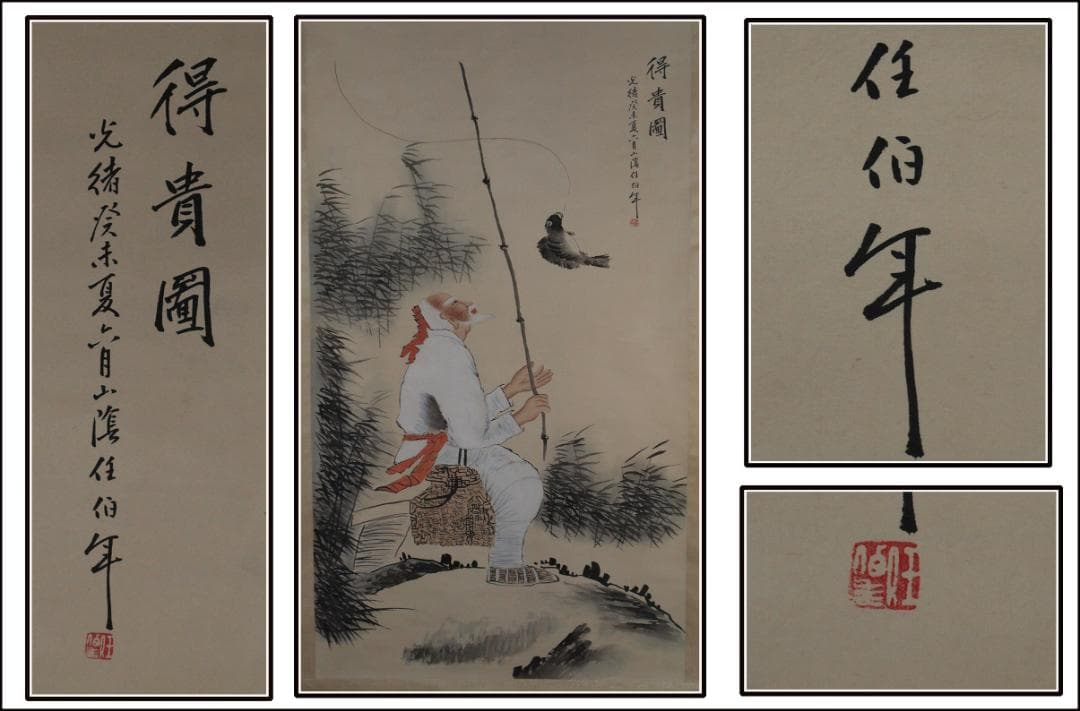 得貴圖
光緒癸未夏六月山陰任伯年
得貴圖
光緒癸未夏六月山陰任伯年
任伯年